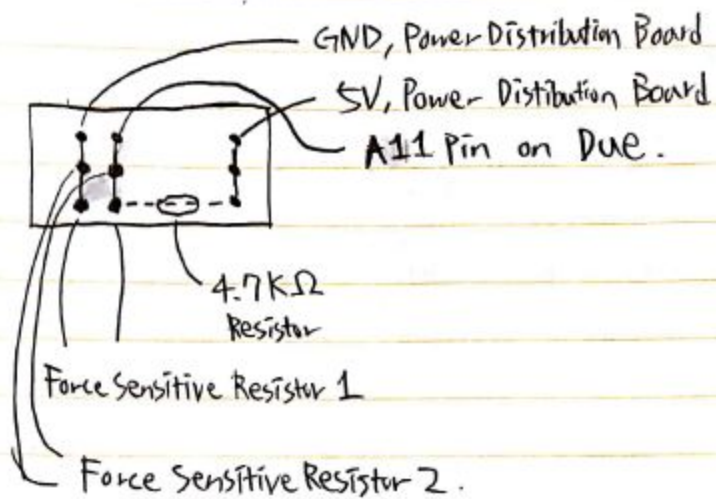 GND, Power Distribution Board
5V, Power Distibution Board
A11 Pin on Due.
4.7KΩ
Resistor
Force Sensitive Resistor 1
Force Sensitive Resistor 2.